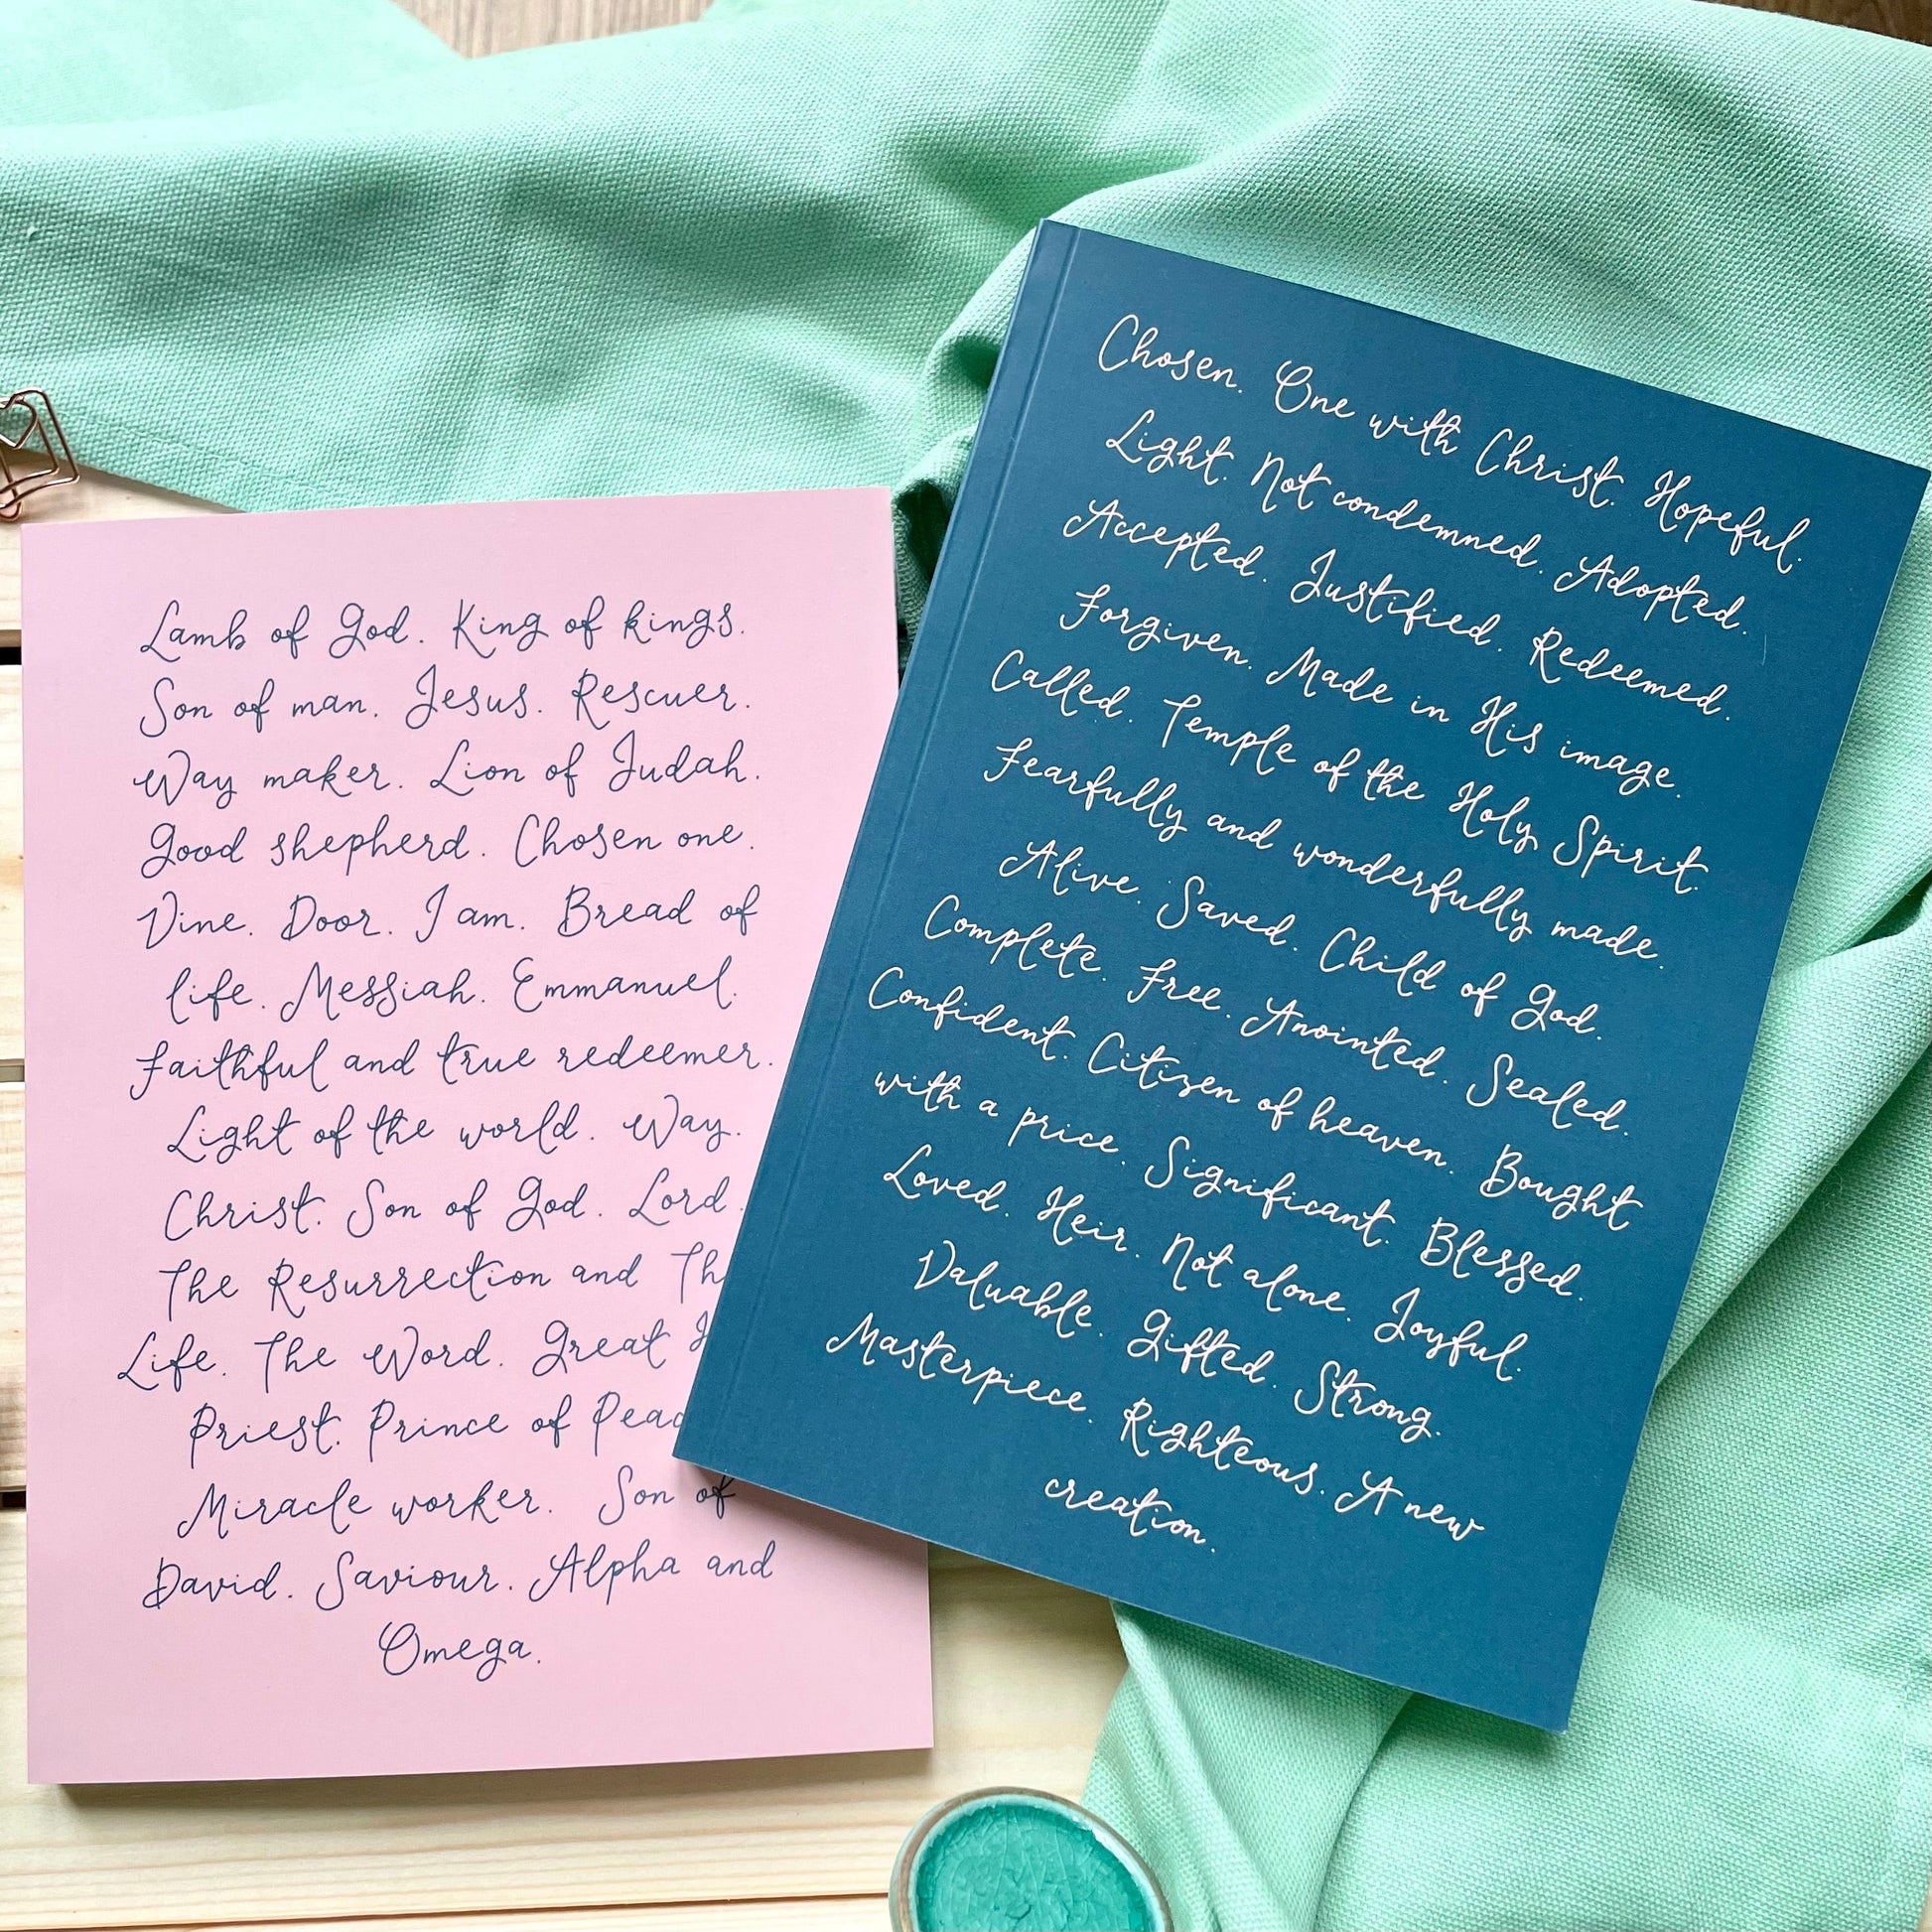 Lamb of God. King of kings.
Son of man. Jesus. Rescuer.
Way maker. Lion of Judah.
Good shepherd. Chosen one.
Vine. Door. I am. Bread of
life. Messiah. Emmanuel.
Faithful and true redeemer.
Light of the world. Way.
Christ. Son of God. Lord.
The Resurrection and Th
Life. The Word. Great
Priest. Prince of Peac
Miracle worker. Son of
David. Saviour. Alpha and
Omega.
Chosen. One with Christ. Hopeful.
Light. Not condemned. Adopted.
Accepted. Justified. Redeemed.
Forgiven. Made in His image.
Called. Temple of the Holy Spirit.
Fearfully and wonderfully made.
Alive. Saved. Child of God.
Complete. Free. Anointed. Sealed.
Confident. Citizen of heaven. Bought
with a price. Significant. Blessed.
Loved. Heir. Not alone. Joyful.
Valuable. Gifted. Strong.
Masterpiece. Righteous. A new
creation.